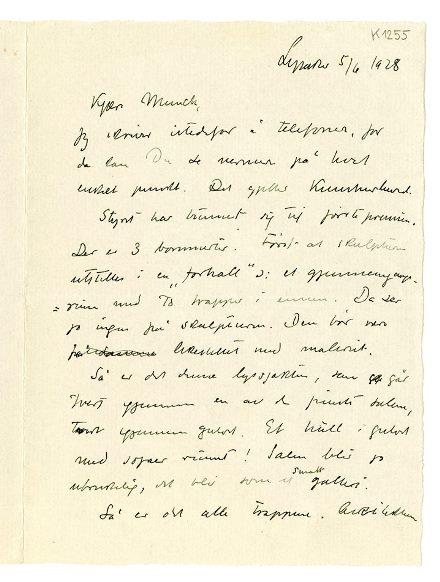 K1255
Lysaker 5/6 1928
Kjære Munch,
Jeg skriver istedefor å telefonere, for
da kan Du se nermere på hvert
enkelt punkt. Det gjelder Kunstnerhuset.
Styret har bundet sig til første premien.
Der er 3 bommerter. Først at skulpturen
utstilles i en "forhall" ɔ: et gjennemgangs-
= rum med trapper i enden. Da ser
jo ingen på skulpturen. Den bør være
likestillet med maleriet.
Så er det denne lyssjakten, som går
tvert gjennem en av de pineste salene,
tvert gjennem gulvet. Et hull i gulvet
med sofaer rundt! Salen blir jo
ubrukelig, det blir som et smalt galleri.
Så er det alle trappene.